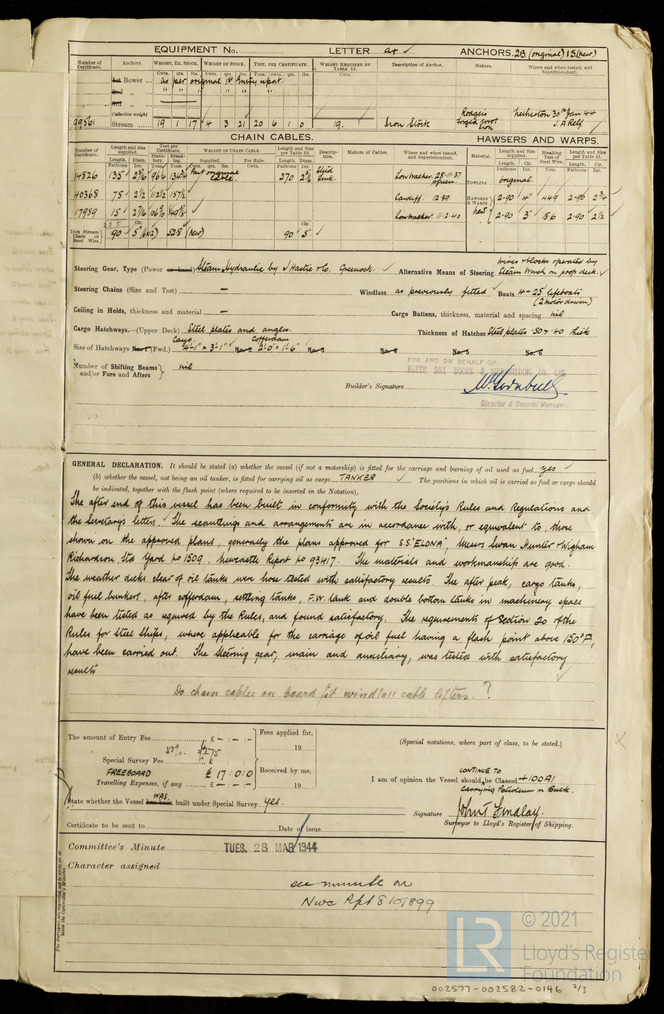 EQUIPMENT No. LETTER ar ✓ ANCHORS. 2B (original) 1S (new)
Number of Certificate. Anchors. WEIGHT, EX. STOCK. WEIGHT OF STOCK. TEST, PER CERTIFICATE. WEIGHT REQUIRED BY TABLE 53. Description of Anchor. Makers. Where and when tested, and Superintendent.
Cwts. qrs. lbs. Cwts. qrs. lbs. Tons. cwts. qrs. lbs. Cwts.
Bower as per original 1st Entry report
" " " " "
Collective weight
99561 Stream 19 1 17 4 3 21 20 6 1 0 19. Iron Stock Netherton 30th Jan 44
J A Relf
CHAIN CABLES. HAWSERS AND WARPS.
Number of Certificate. Length and size supplied. Test per Certificate. WEIGHT OF CHAIN CABLE. Length and Size per Table 53. Description. Makers of Cables. Where and when tested, and Superintendent. Material. Length and size supplied. Breaking Test of Steel Wire. Length and size per Table 53.
Length. Diam. Statutory. Breaking. Supplied. Per Rule. Length. Diam. Length. Cir. Length. Cir.
Fathoms Ins. Tons. Tons. Cwts. qrs. lbs. Cwts. Fathoms Ins. Fathoms Ins. Tons. Fathoms Ins.
14826 135 Part original cable 270 Stud Link. Low Walker 28-11-37 TOWLINE original
40368 75 Cardiff HAWSERS & WARPS 2-90 4" 44.9 2-90 2¾
17959 15 Low Walker. 11-2-40 new 2-90 3" 2-90 2½
Iron Stream Chain or Steel Wire 90 5" 52.8 (new) 90 5"
Steering Gear, Type (Power or hand) Steam Hydraulic by J Hastie & Co. Greenock. ✓ Alternative Means of Steering wires & blocks operated by steam winch on poop deck. ✓
Steering Chains (Size and Test) — Windlass as previously fitted ✓ Boats 4-25' lifeboats
(2 motor driven)
Ceiling in Holds, thickness and material — Cargo Battens, thickness, material and spacing nil
Cargo Hatchways.—(Upper Deck) Steel plates and angles. Thickness of Hatches Steel plates .50 & .40 thick
Cargo Cofferdam
Size of Hatchways No. 1 (Fwd.) 4'-1" × 3'-1" No. 2 2'-0" × 1'-6" No. 3 No. 4 No. 5 No. 6
Number of Shifting Beams and/or Fore and Afters nil
FOR AND ON BEHALF OF
BLYTH DRY DOCKS & SHIPBUILDING CO. LTD
Builder's Signature.
Director & General Manager
GENERAL DECLARATION. It should be stated (a) whether the vessel (if not a motorship) is fitted for the carriage and burning of oil used as fuel yes ✓
(b) whether the vessel, not being an oil tanker, is fitted for carrying oil as cargo. TANKER ✓ The positions in which oil is carried as fuel or cargo should
be indicated, together with the flash point (where required to be inserted in the Notation),
The after end of this vessel has been built in conformity with the Society's Rules and Regulations and
the Secretary's letters. The scantlings and arrangements are in accordance with, or equivalent to, those
shown on the approved plans, generally the plans approved for S.S. "ELONA", Messrs Swan Hunter & Wigham
Richardson Ltd Yard No 1509, Newcastle Report No 93417. The materials and workmanship are good.
The weather decks clear of oil tanks were hose tested with satisfactory results. The after peak, cargo tanks,
oil fuel bunker, after cofferdam, settling tanks, F.W. tank and double bottom tanks in machinery space
have been tested as required by the Rules, and found satisfactory. The requirements of Section 20 of the
Rules for Steel Ships, where applicable for the carriage of oil fuel having a flash point above 150°F,
have been carried out. The steering gear, main and auxiliary, was tested with satisfactory
results
Do chain cables on board fit windlass cable lifters. ?
The amount of Entry Fee £ – : – : – Fees applied for,
50% 19
Special Survey Fee £ : :
FREEBOARD £ 17 : 0 : 0 Received by me,
Travelling Expenses, if any £ – : – : – 19
(Special notations, where part of class, to be stated.)
CONTINUE TO
I am of opinion the Vessel should be Classed +100A1
Carrying Petroleum in Bulk.
State whether the Vessel WAS has been built under Special Survey Yes.
Signature
Surveyor to Lloyd's Register of Shipping.
Certificate to be sent to Date of issue
Committee's Minute TUES. 28 MAR 1944
Character assigned
see minute on
Nwc Rpt
© 2021
LR Lloyd's Register
Foundation
002577-002582-0146 2/3